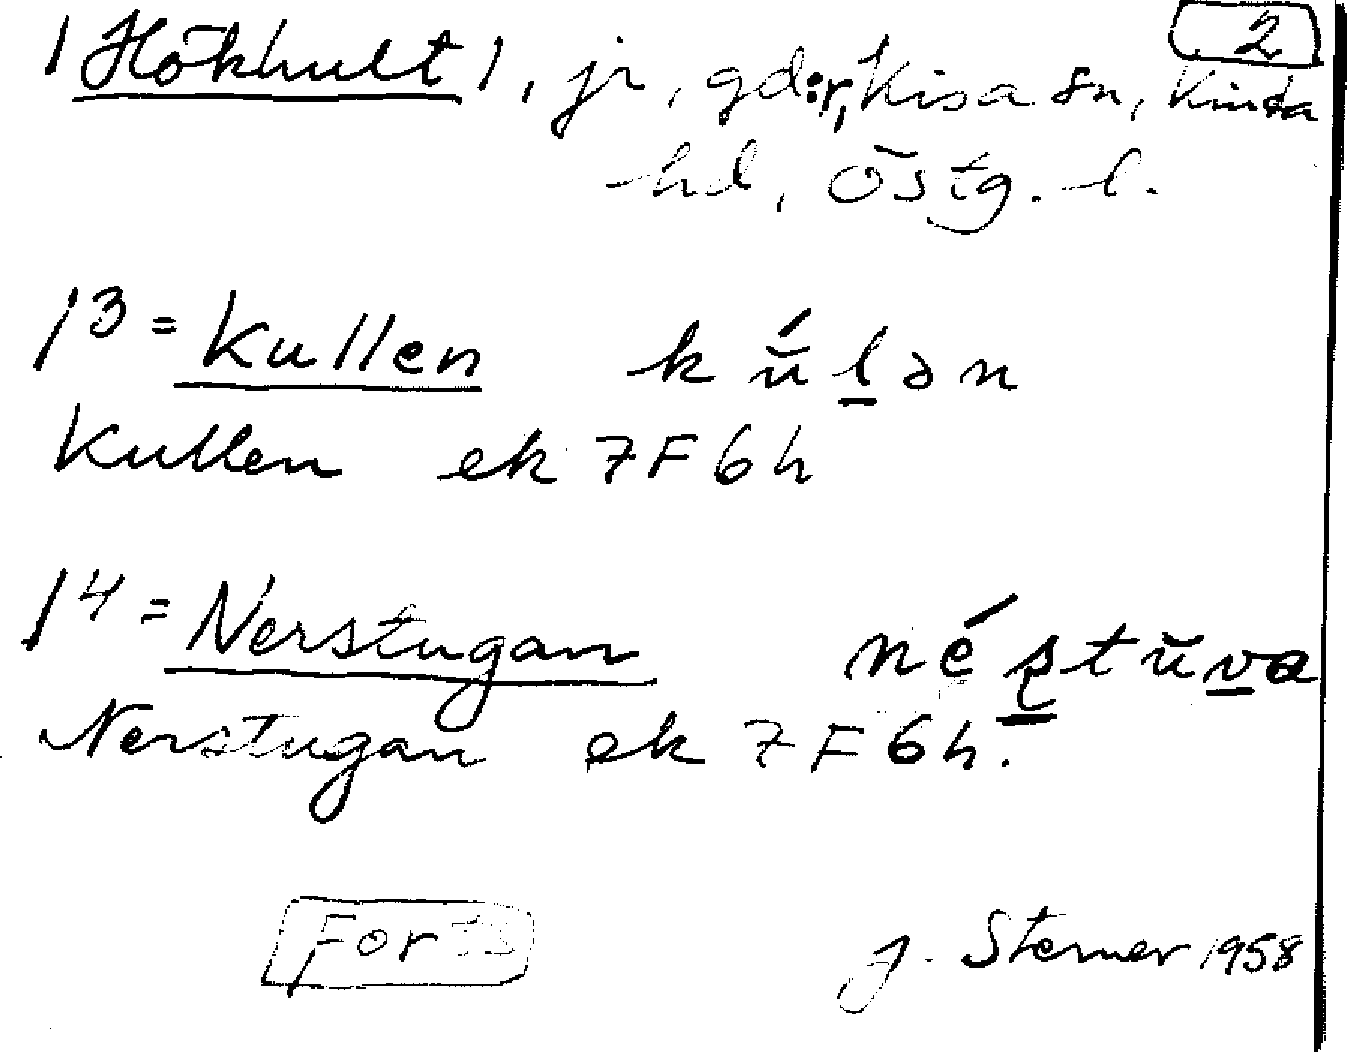 2
/Hökhult/, jr, gd:r, Kisa sn, Kinda
hd, Östg. l.
1³ = Kullen kŭ́lən
Kullen ek 7F6h
1⁴ = Nerstugan néʂtŭva
Nerstugan ek 7F6h.
Forts
J. Sterner 1958